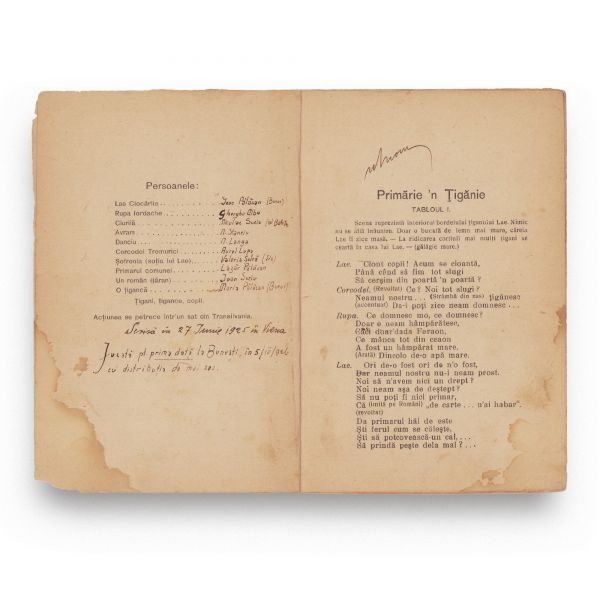 Persoanele:
Lae Ciocârtin . . . . . . . . . Ioan Pălășan
Rupa Iordache . . . . . . . . Gheorghe Albu
Ciurilă . . . . . . . . . . Nicolae Suciu
Avram . . . . . . . . . . N. Stanciu
Danciu . . . . . . . . . . N. Langa
Corcodel Tromurici . . . . . . Aurel Lupu
Sofronia (soția lui Lae) . . . . Valeria
Primarul comunei . . . . . . Lazăr Pălășan
Un român (țăran) . . . . . . Ioan Suciu
O țigancă . . . . . . . . . Maria Pălășan
Țigani, țigance, copii.
Acțiunea se petrece intr'un sat din Transilvania.
Scrisă in 27 Iunie 1925 in Viena
Jucată pt. prima dată la Bunești, în 5/IV/926
cu distribuția de mai sus.
Primărie 'n Țigănie
TABLOUL I.
Scena reprezintă interiorul bordeiului țiganului Lae. Nimic
nu se află înăuntru. Doar o bucată de lemn mai mare, căreia
Lae îi zice masă. — La ridicarea cortinii mai mulți țigani se
ceartă în casa lui Lae. — (gălăgie mare.)
Lae. CionI copii! Acum se cioantă,
Până când să fim tot slugi
Să cerșim din poartă 'n poartă?
Corcodel. (Revoltat) Ce? Noi tot slugi?
Neamul nostru... (Strâmbă din nas) țigănesc
(accentuat) Da-i poți zice neam domnesc...
Rupa. Ce domnesc mo, ce domnesc?
Doar e neam hâmpărătesc,
Că doar'dada Feraon,
Ce mânca tot din ceaon
A fost un hâmpărat mare.
(Arată) Dincolo de-o apă mare.
Lae. Ori de-o fost ori de n'o fost,
Dar neamul nostru nu-i neam prost.
Noi să n'avem nici un drept?
Noi neam așa de deștept?
Să nu poți fi nici primar,
Că (imită pe Români) „de carte... n'ai habar".
(revoltat)
Da primarul hăl de este
Ști ferul cum se călește,
Ști să potcovească-un cal....
Să prindă pește dela mal?...